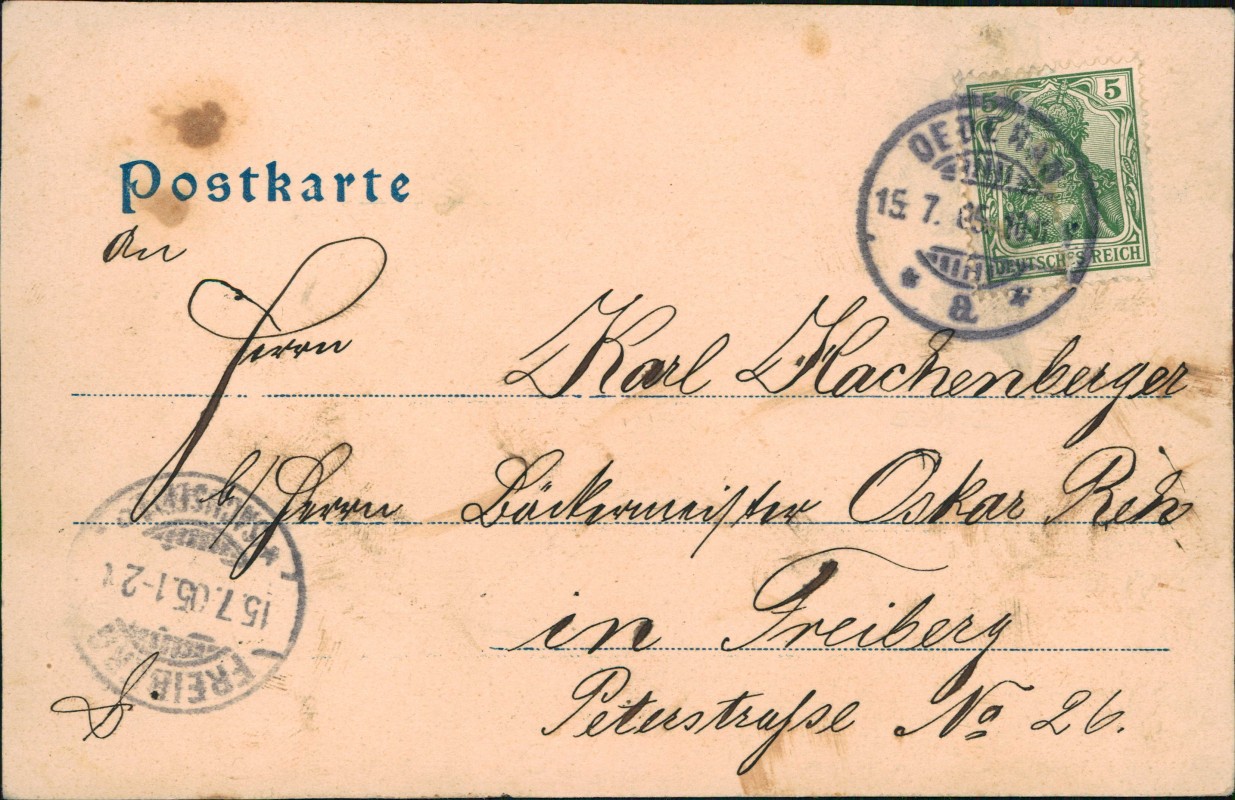 Postkarte
5 5
DEUTSCHES REICH
OEDERAN
15. 7. 05.
a
An
Herrn Karl Hachenberger
b/ Herrn Bäckermeister Oskar
in Freiberg
Peterstraſse No 26.
15.7.05.1-2
FREIB